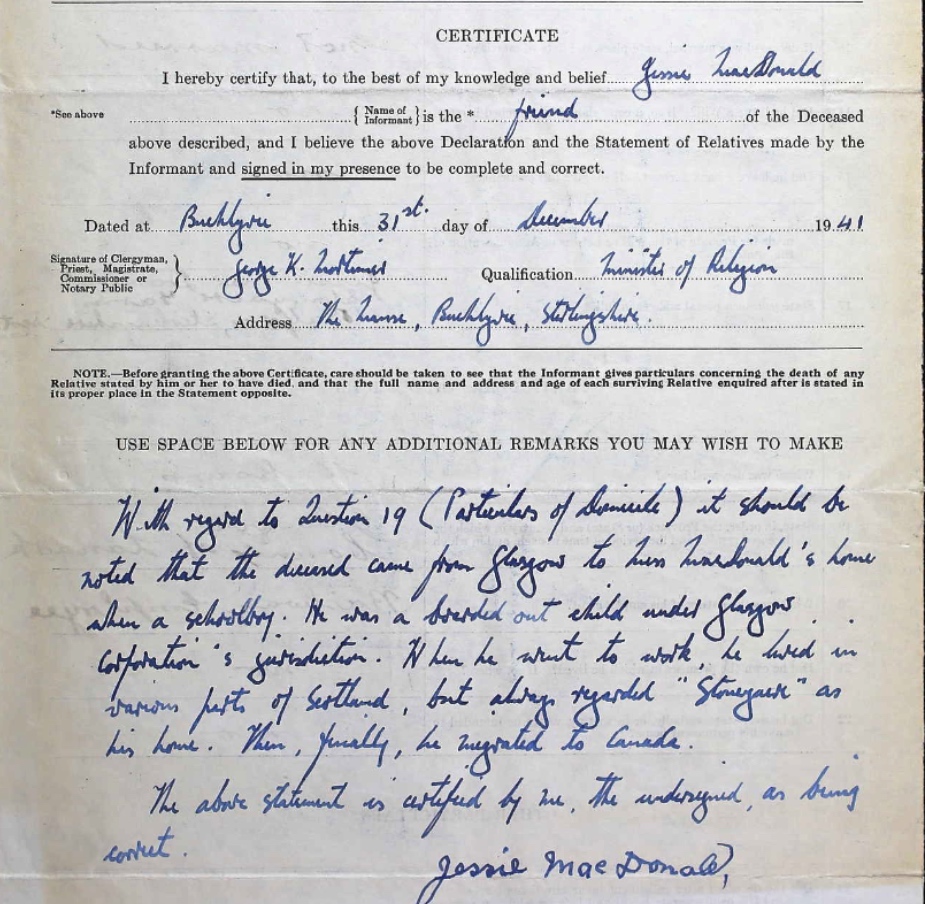 CERTIFICATE
I hereby certify that, to the best of my knowledge and belief Jessie MacDonald
*See above { Name of Informant } is the * friend of the Deceased
above described, and I believe the above Declaration and the Statement of Relatives made by the
Informant and signed in my presence to be complete and correct.
Dated at Buchlyvie this 31st. day of December 1941
Signature of Clergyman, Priest, Magistrate, Commissioner or Notary Public } George K. Mortimer Qualification Minister of Religion
Address The Manse, Buchlyvie, Stirlingshire.
NOTE.—Before granting the above Certificate, care should be taken to see that the Informant gives particulars concerning the death of any
Relative stated by him or her to have died, and that the full name and address and age of each surviving Relative enquired after is stated in
its proper place in the Statement opposite.
USE SPACE BELOW FOR ANY ADDITIONAL REMARKS YOU MAY WISH TO MAKE
With regard to Question 19 (Particulars of Domicile) it should be
noted that the deceased came from Glasgow to Miss MacDonald's home
when a schoolboy. He was a boarded out child under Glasgow
Corporation's jurisdiction. When he went to work, he lived in
various parts of Scotland, but always regarded "" as
his home. Then, finally, he migrated to Canada.
The above statement is certified by me, the undersigned, as being
correct.
Jessie MacDonald,